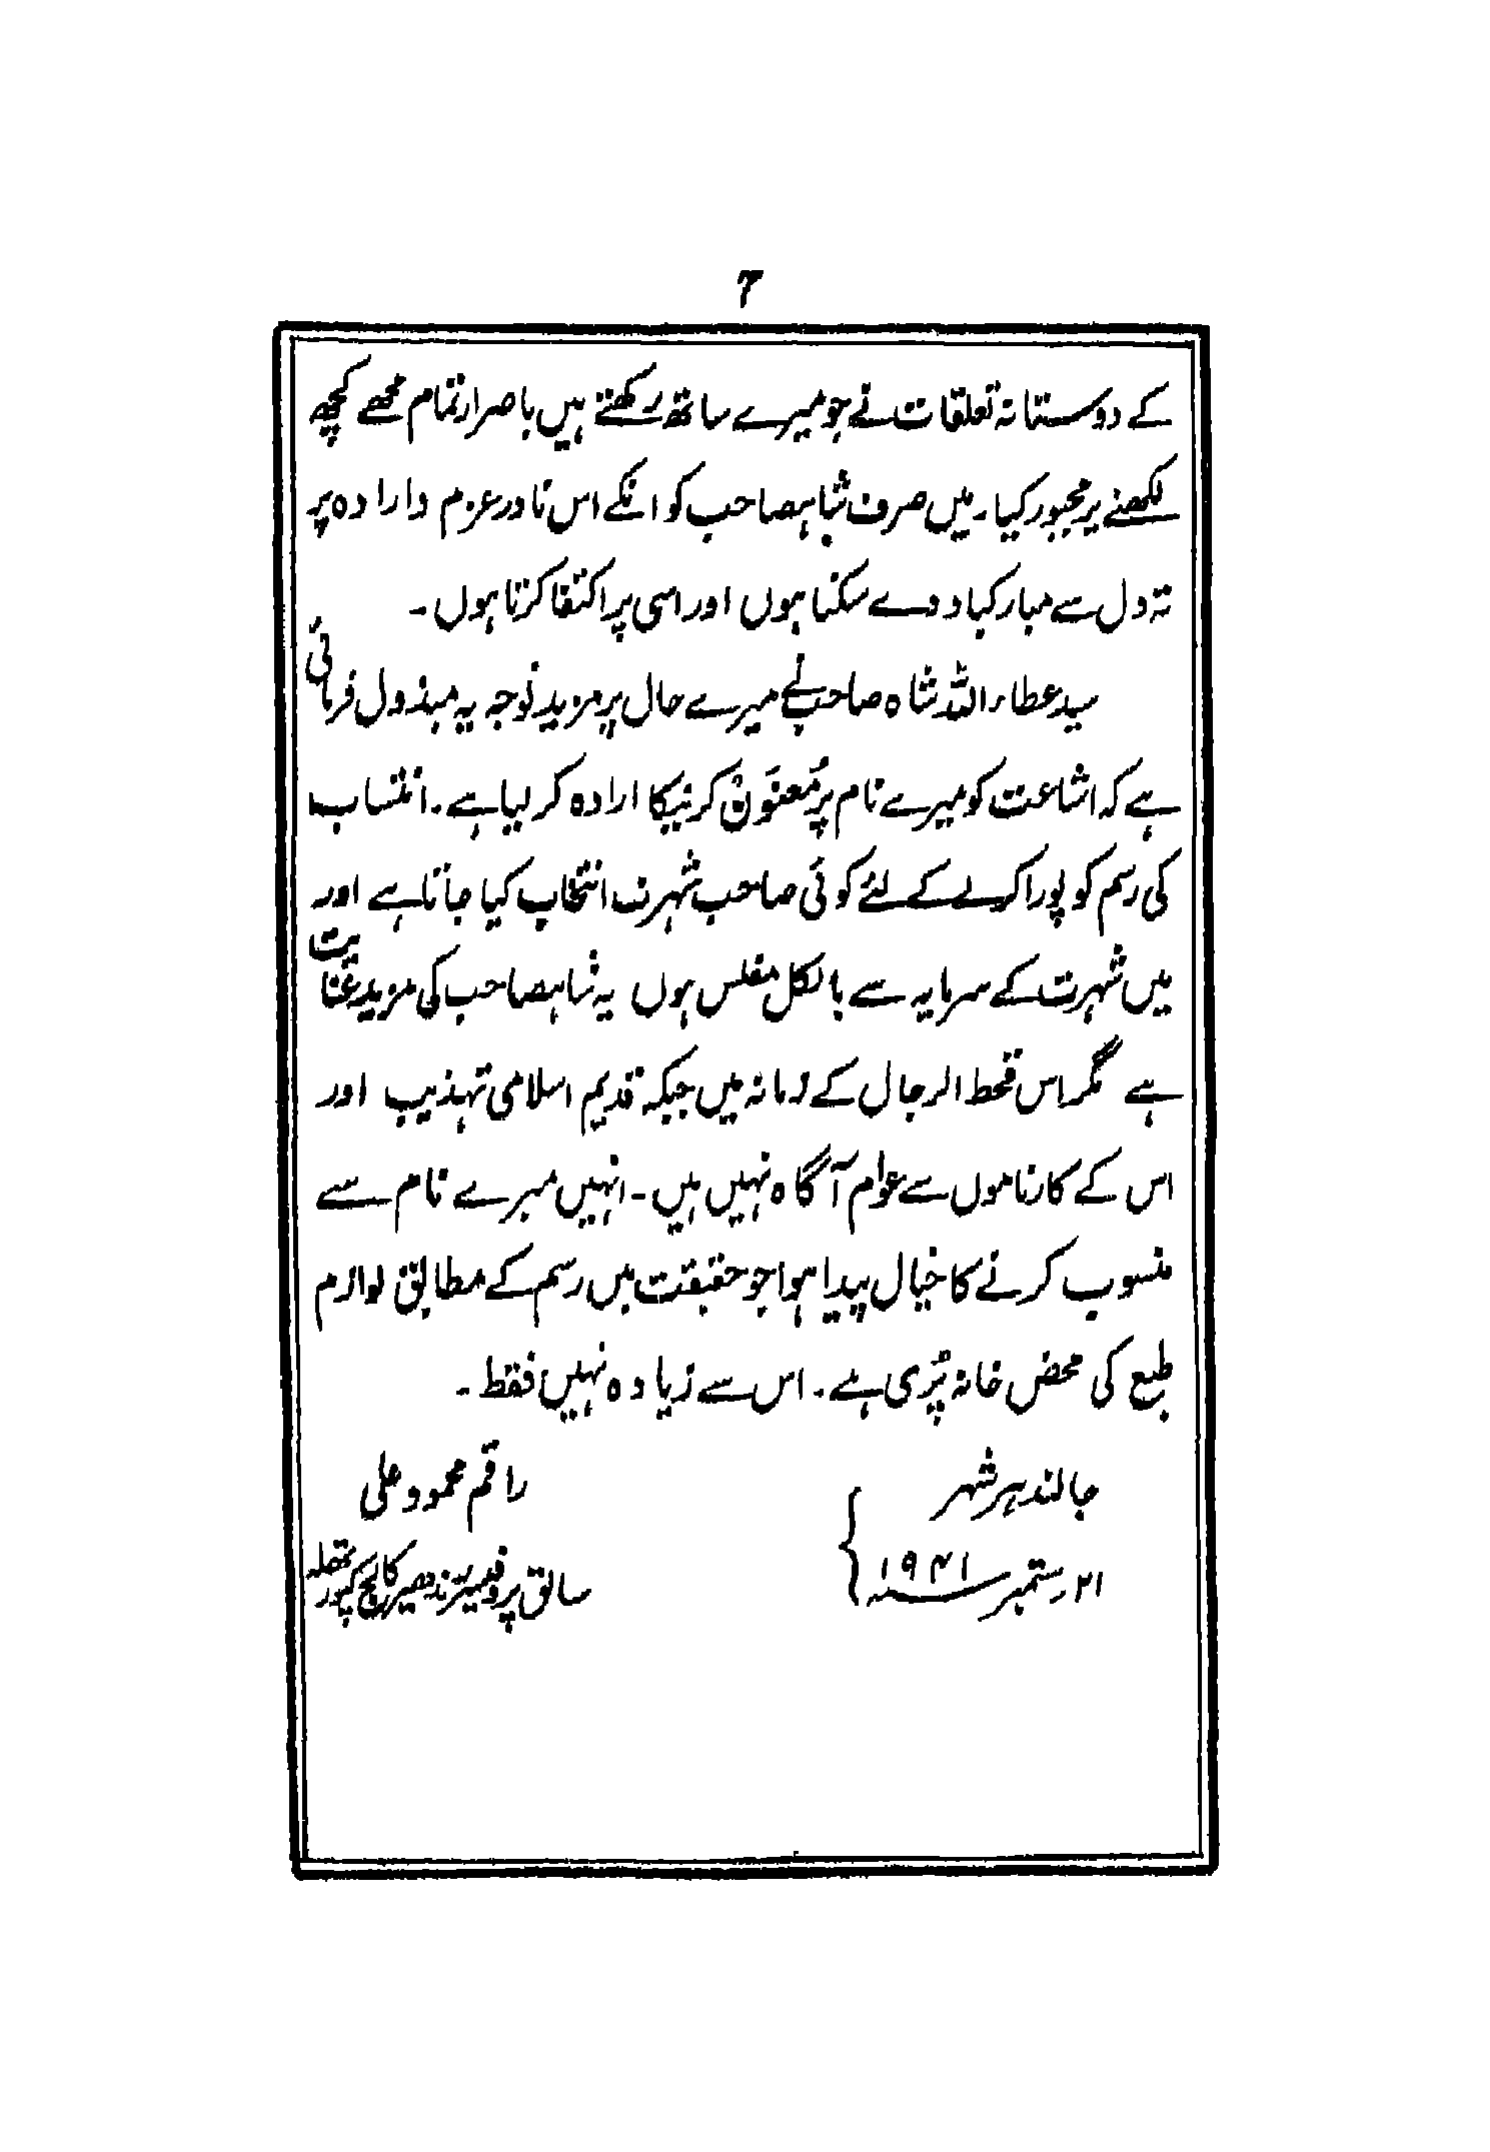 7
کے دوستانہ تعلقات نے جو میرے ساتھ رکھتے ہیں باصرار تمام مجھے کچھ
لکھنے پر مجبور کیا۔ میں صرف شاہصاحب کو انکے اس نادر عزم و ارادہ پر
تہ دل سے مبارکباد دے سکتا ہوں اور اسی پر اکتفا کرتا ہوں۔
سید عطاء اللہ شاہ صاحب نے میرے حال پر مزید توجہ یہ مبذول فرمائی
ہے کہ اشاعت کو میرے نام پر مُعنوَن کرنیکا ارادہ کر لیا ہے۔ انتساب
کی رسم کو پورا کرنے کے لئے کوئی صاحب شہرت انتخاب کیا جاتا ہے اور
میں شہرت کے سرمایہ سے بالکل مفلس ہوں یہ شاہصاحب کی مزید عنایت
ہے مگر اس قحط الرجال کے زمانہ میں جبکہ قدیم اسلامی تہذیب اور
اس کے کارناموں سے عوام آگاہ نہیں ہیں۔ انہیں میرے نام سے
منسوب کرنے کا خیال پیدا ہوا جو حقیقت میں رسم کے مطابق لوازم
طبع کی محض خانہ پُری ہے۔ اس سے زیادہ نہیں فقط۔
جالندہر شہر
راقم محمود علی
۲۱ ستمبر ۱۹۴۱
سابق پروفیسر رندھیر کالج کپورتھلہ